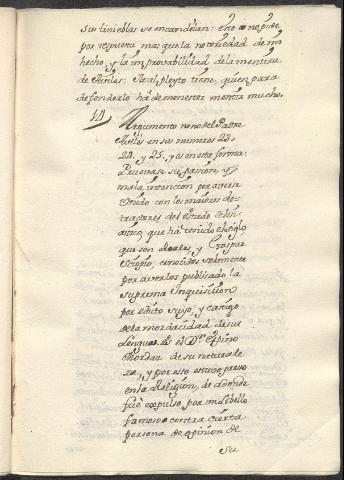 sus tinieblas se encandilan: Eño no pide
por respuesta mas que la notoriedad de mi
hecho, y la improvabilidad de la mentira
de Aviles: Mal pleyto tiene, quien para
defenderlo há de menester mentir mucho.
Argumento nono del Padre
Aviles en sus numeros 23.
24. y 25. y es en esta forma:
Pruevase su passion, y
mala intencion por averse
Unido con los maiores de-
tractores del Estado Ecclesi-
astico, que há tenido el siglo,
que son Moales, y Gaspar
Sciopio, conocidos solamente
por averlos publicado la
suprema Inquisicion
por edicto suyo, y castigo
de la mordacidad de sus
lenguas. Es el Dr. Espino
Mordaz de su naturale
za, y por esso estuvo preso
en la Religion, de adonde
fué expulso por un libello
famoso contra cierta
persona de opinion de
Su